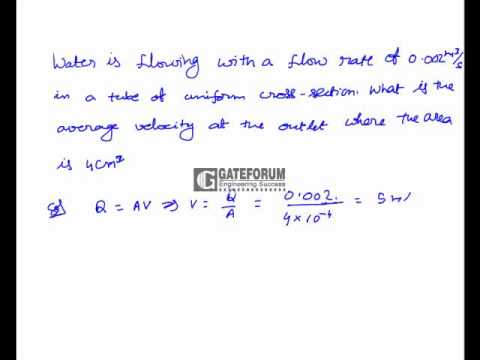 Water is flowing with a flow rate of 0.002 m³/s
in a tube of uniform cross-section. What is the
average velocity at the outlet where the area
is 4cm²
GATEFORUM
Engineering Success
Sol Q = AV ⇒ V = Q/A = 0.002/4×10⁻⁴ = 5 m/